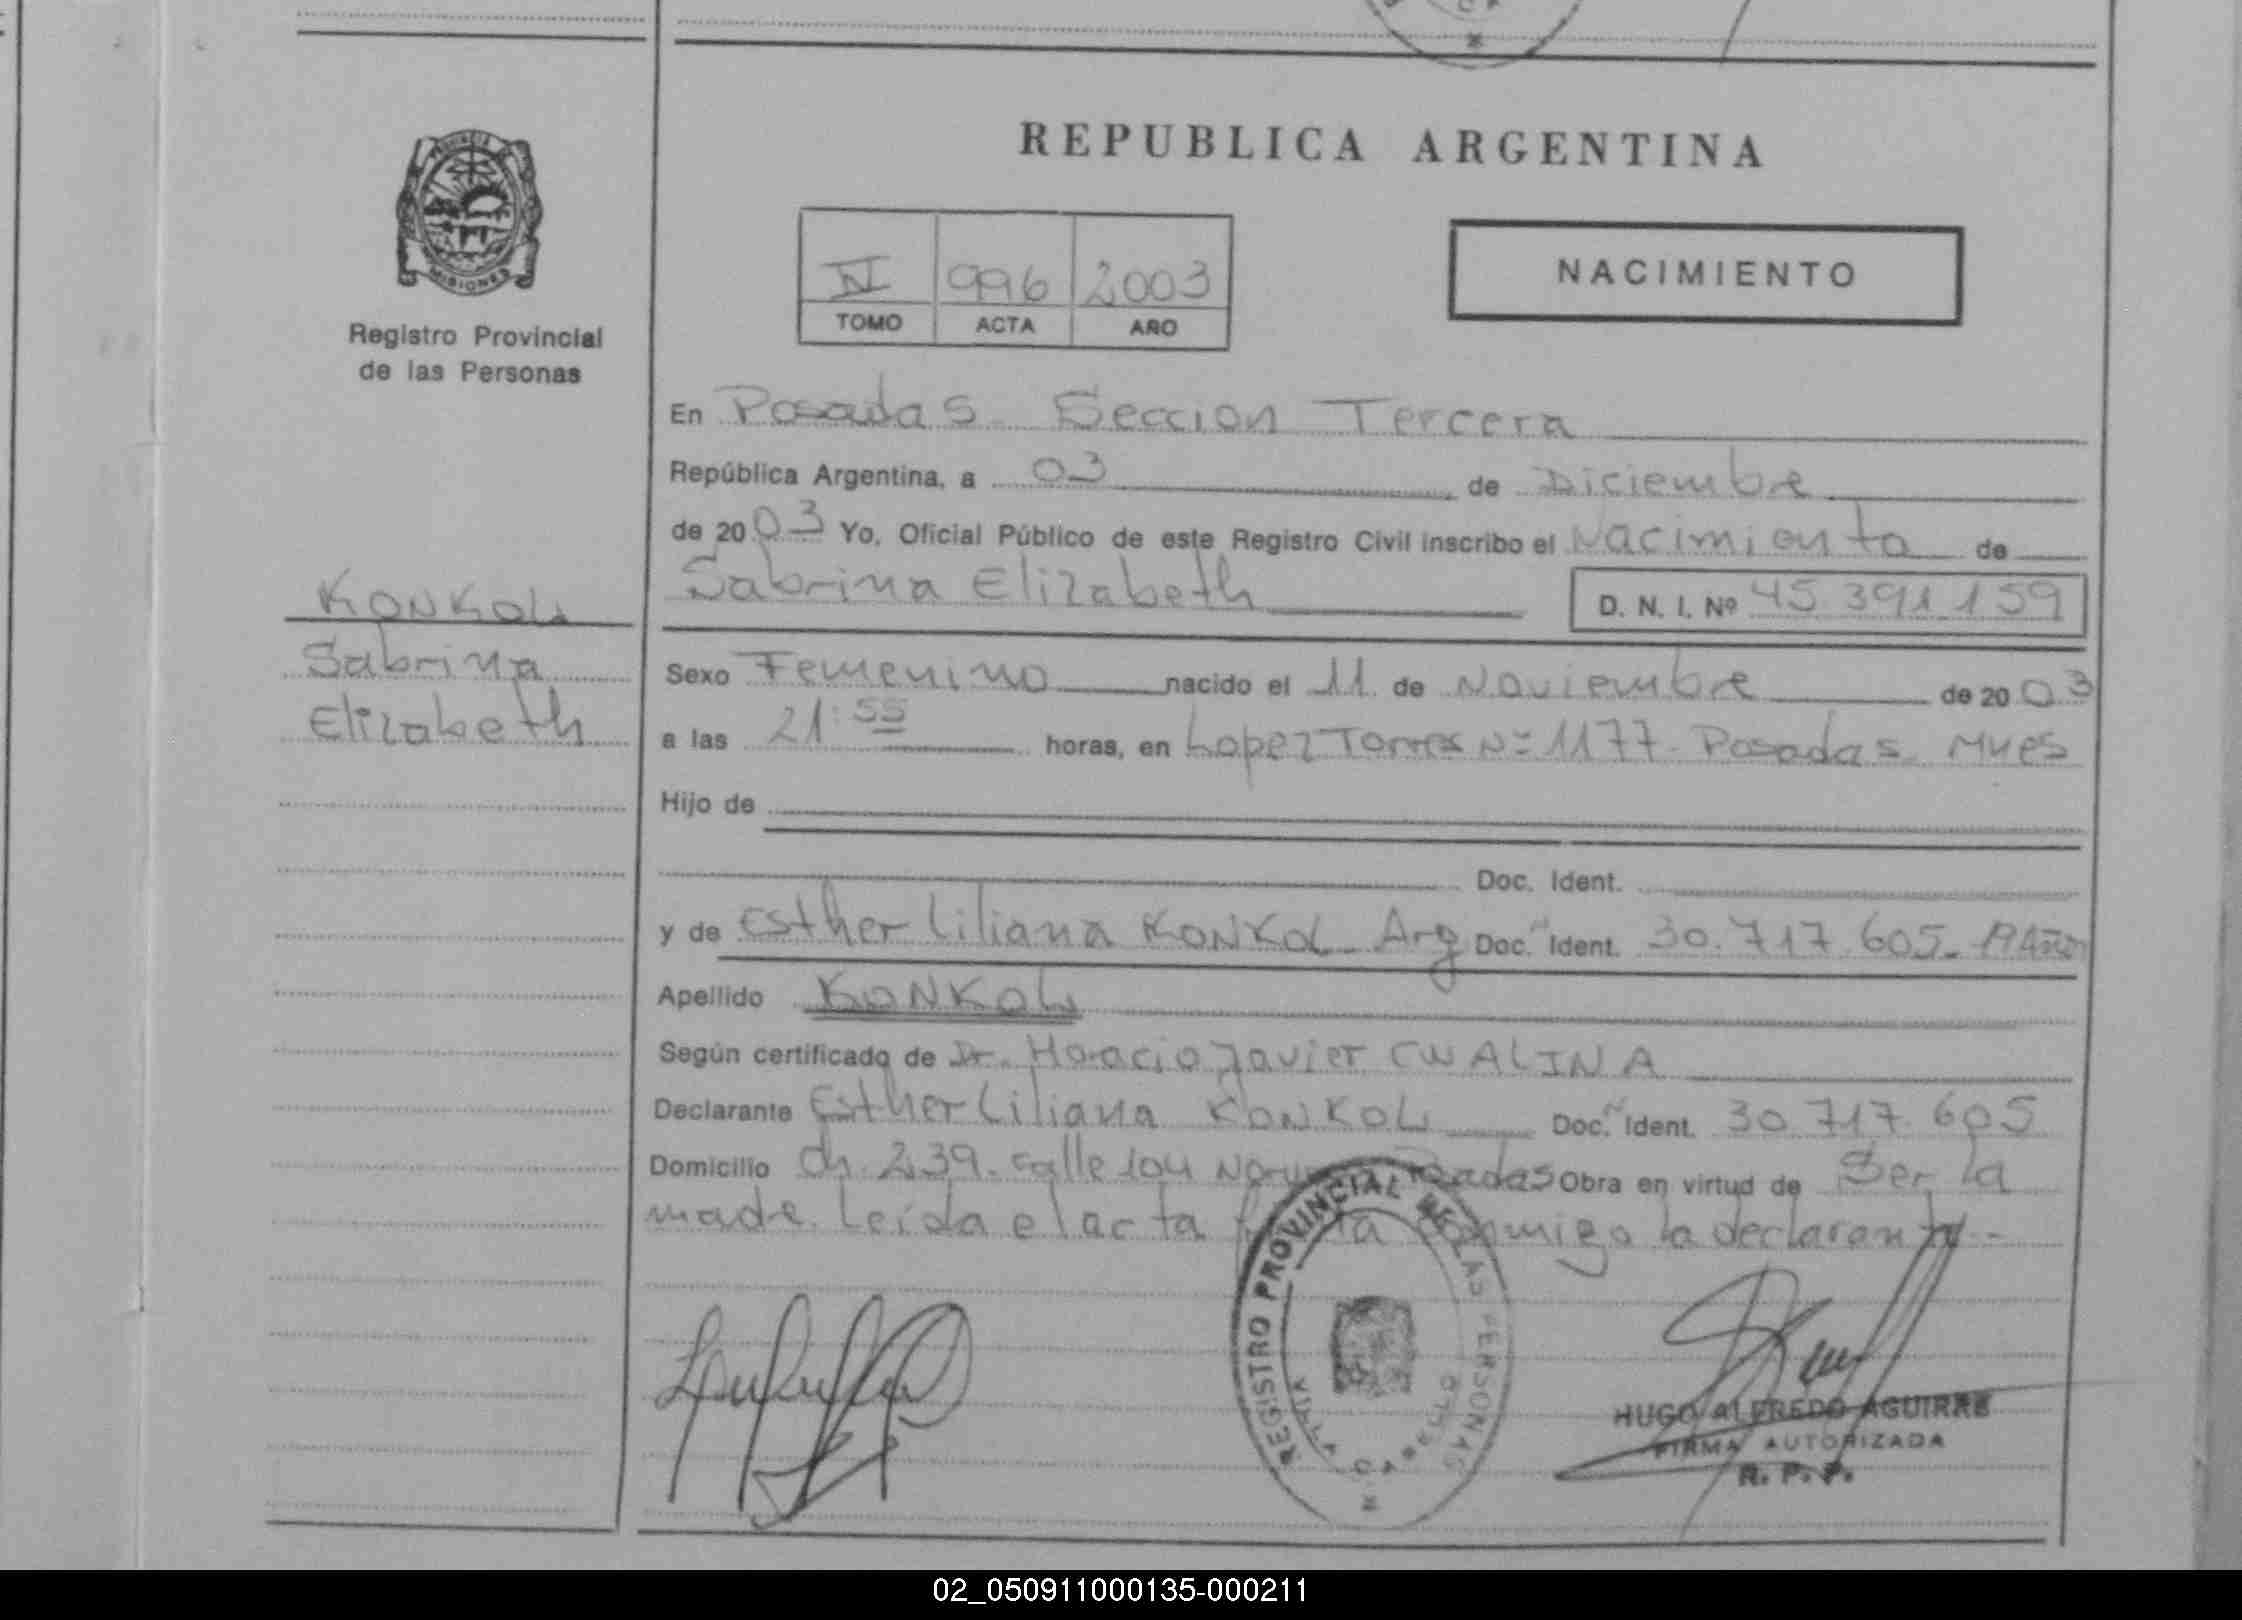 PROVINCIA DE
MISIONES
Registro Provincial
de las Personas
KONKOL
Sabrina
Elizabeth
REPUBLICA ARGENTINA
IV 996 2003
TOMO ACTA AÑO
NACIMIENTO
En Posadas Seccion Tercera
República Argentina, a 03 de Diciembre
de 2003 Yo, Oficial Público de este Registro Civil inscribo el Nacimiento de
Sabrina Elizabeth D. N. I. Nº 45.391.159
Sexo Femenino nacido el 11 de Noviembre de 2003
a las 21:55 horas, en Lopez Torres Nº 1177. Posadas Mnes
Hijo de
Doc. Ident.
y de Esther Liliana KONKOL Arg Doc. Ident. 30.717.605 - 19 Años
Apellido KONKOL
Según certificado de Dr. Horacio Javier CWALINA
Declarante Esther Liliana KONKOL Doc. Ident. 30.717.605
Domicilio Ch. 239. calle 104 Posadas Obra en virtud de Ser la
madre. Leida el acta conmigo la declarante.-
REGISTRO PROVINCIAL DE LAS PERSONAS
VILLA CABELLO
HUGO ALFREDO AGUIRRE
FIRMA AUTORIZADA
R. P. P.
02_050911000135-000211